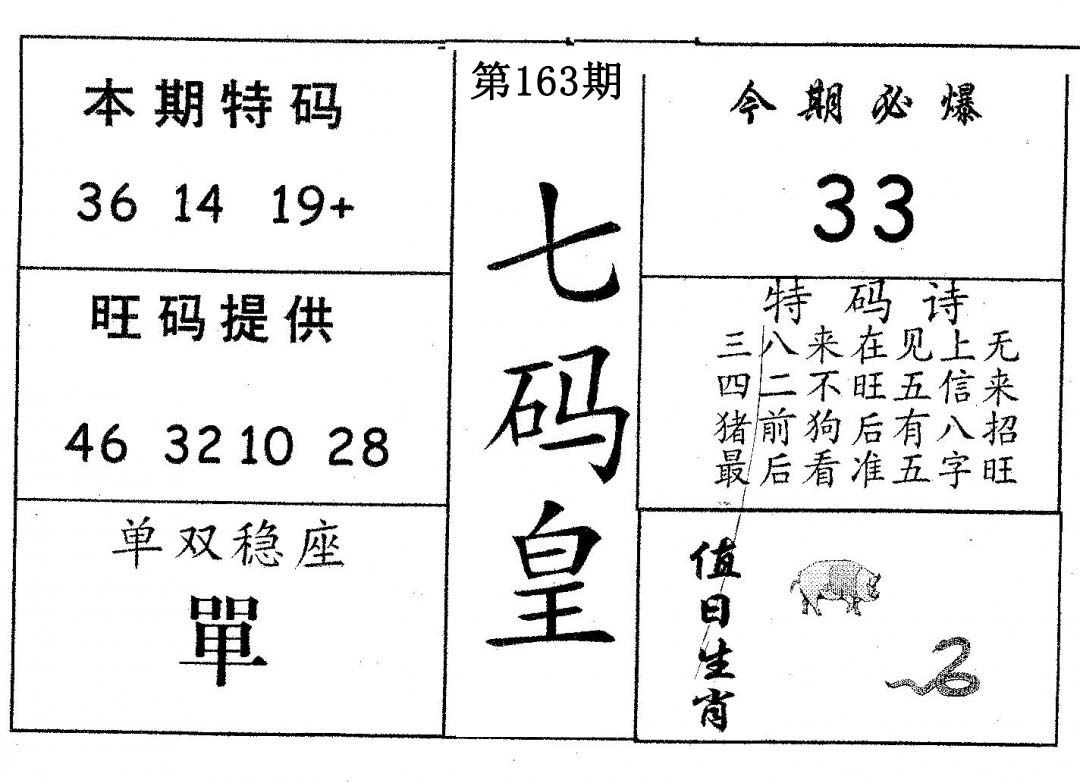 本期特码
36 14 19+
旺码提供
46 32 10 28
单双稳座
單
第163期
七码皇
今期必爆
33
特码诗
三八来在见上无
四二不旺五信来
猪前狗后有八招
最后看准五字旺
值日生肖